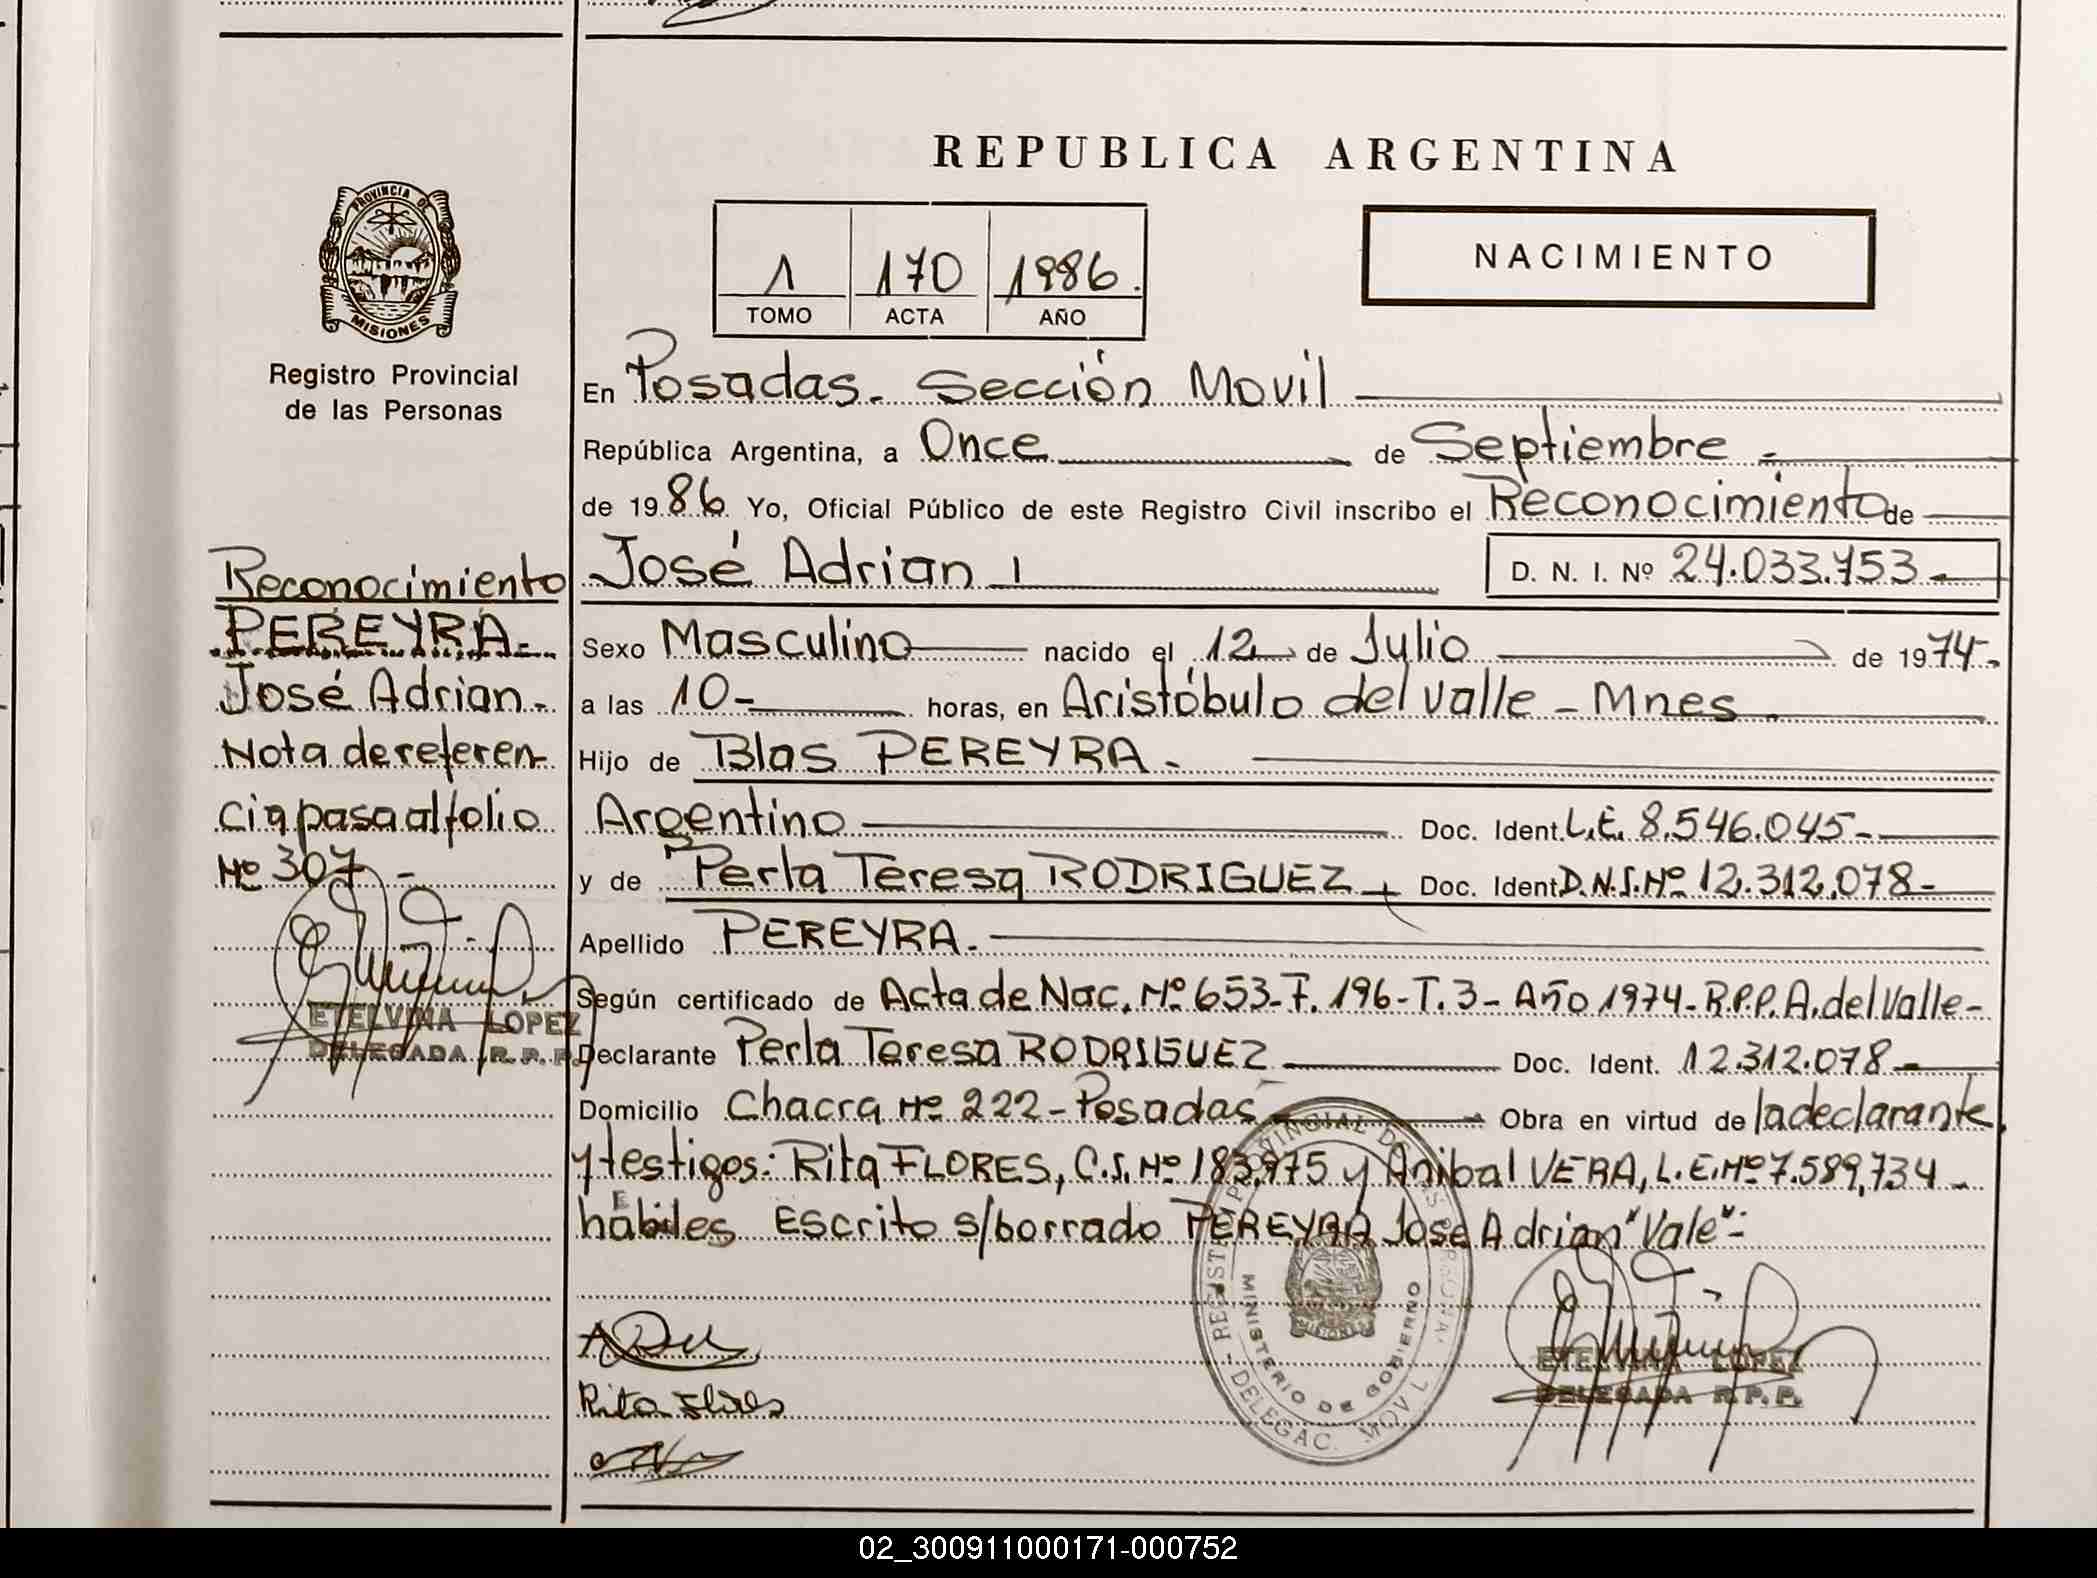 REPUBLICA ARGENTINA
PROVINCIA DE
MISIONES
Registro Provincial
de las Personas
NACIMIENTO
1 170 1986.
TOMO ACTA AÑO
En Posadas. Sección Movil
República Argentina, a Once de Septiembre
de 1986 Yo, Oficial Público de este Registro Civil inscribo el Reconocimiento de
José Adrian
D. N. I. Nº 24.033.753
Sexo Masculino nacido el 12 de Julio de 1974.
a las 10 horas, en Aristóbulo del Valle - Mnes
Hijo de Blas PEREYRA.
Argentino Doc. Ident. L.E. 8.546.045
y de Perla Teresa RODRIGUEZ Doc. Ident D.N.I. Nº 12.312.078
Apellido PEREYRA.
Según certificado de Acta de Nac. Nº 653-F. 196-T. 3- Año 1974- R.P.P. A. del Valle-
Declarante Perla Teresa RODRIGUEZ Doc. Ident. 12.312.078
Domicilio Chacra Nº 222 - Posadas Obra en virtud de la declarante
y testigos: Rita FLORES, C.I. Nº 183.975 y Anibal VERA, L.E. Nº 7.589.734
hábiles Escrito s/borrado PEREYRA José Adrian "Vale":
Rita Flores
Reconocimiento
PEREYRA.
José Adrian.
Nota de referen
cia pasa al folio
Nº 307
ETELVINA LOPEZ
DELEGADA R.P.P.
MINISTERIO DE GOBIERNO
MISIONES
ETELVINA LOPEZ
DELEGADA R.P.P.
02_300911000171-000752